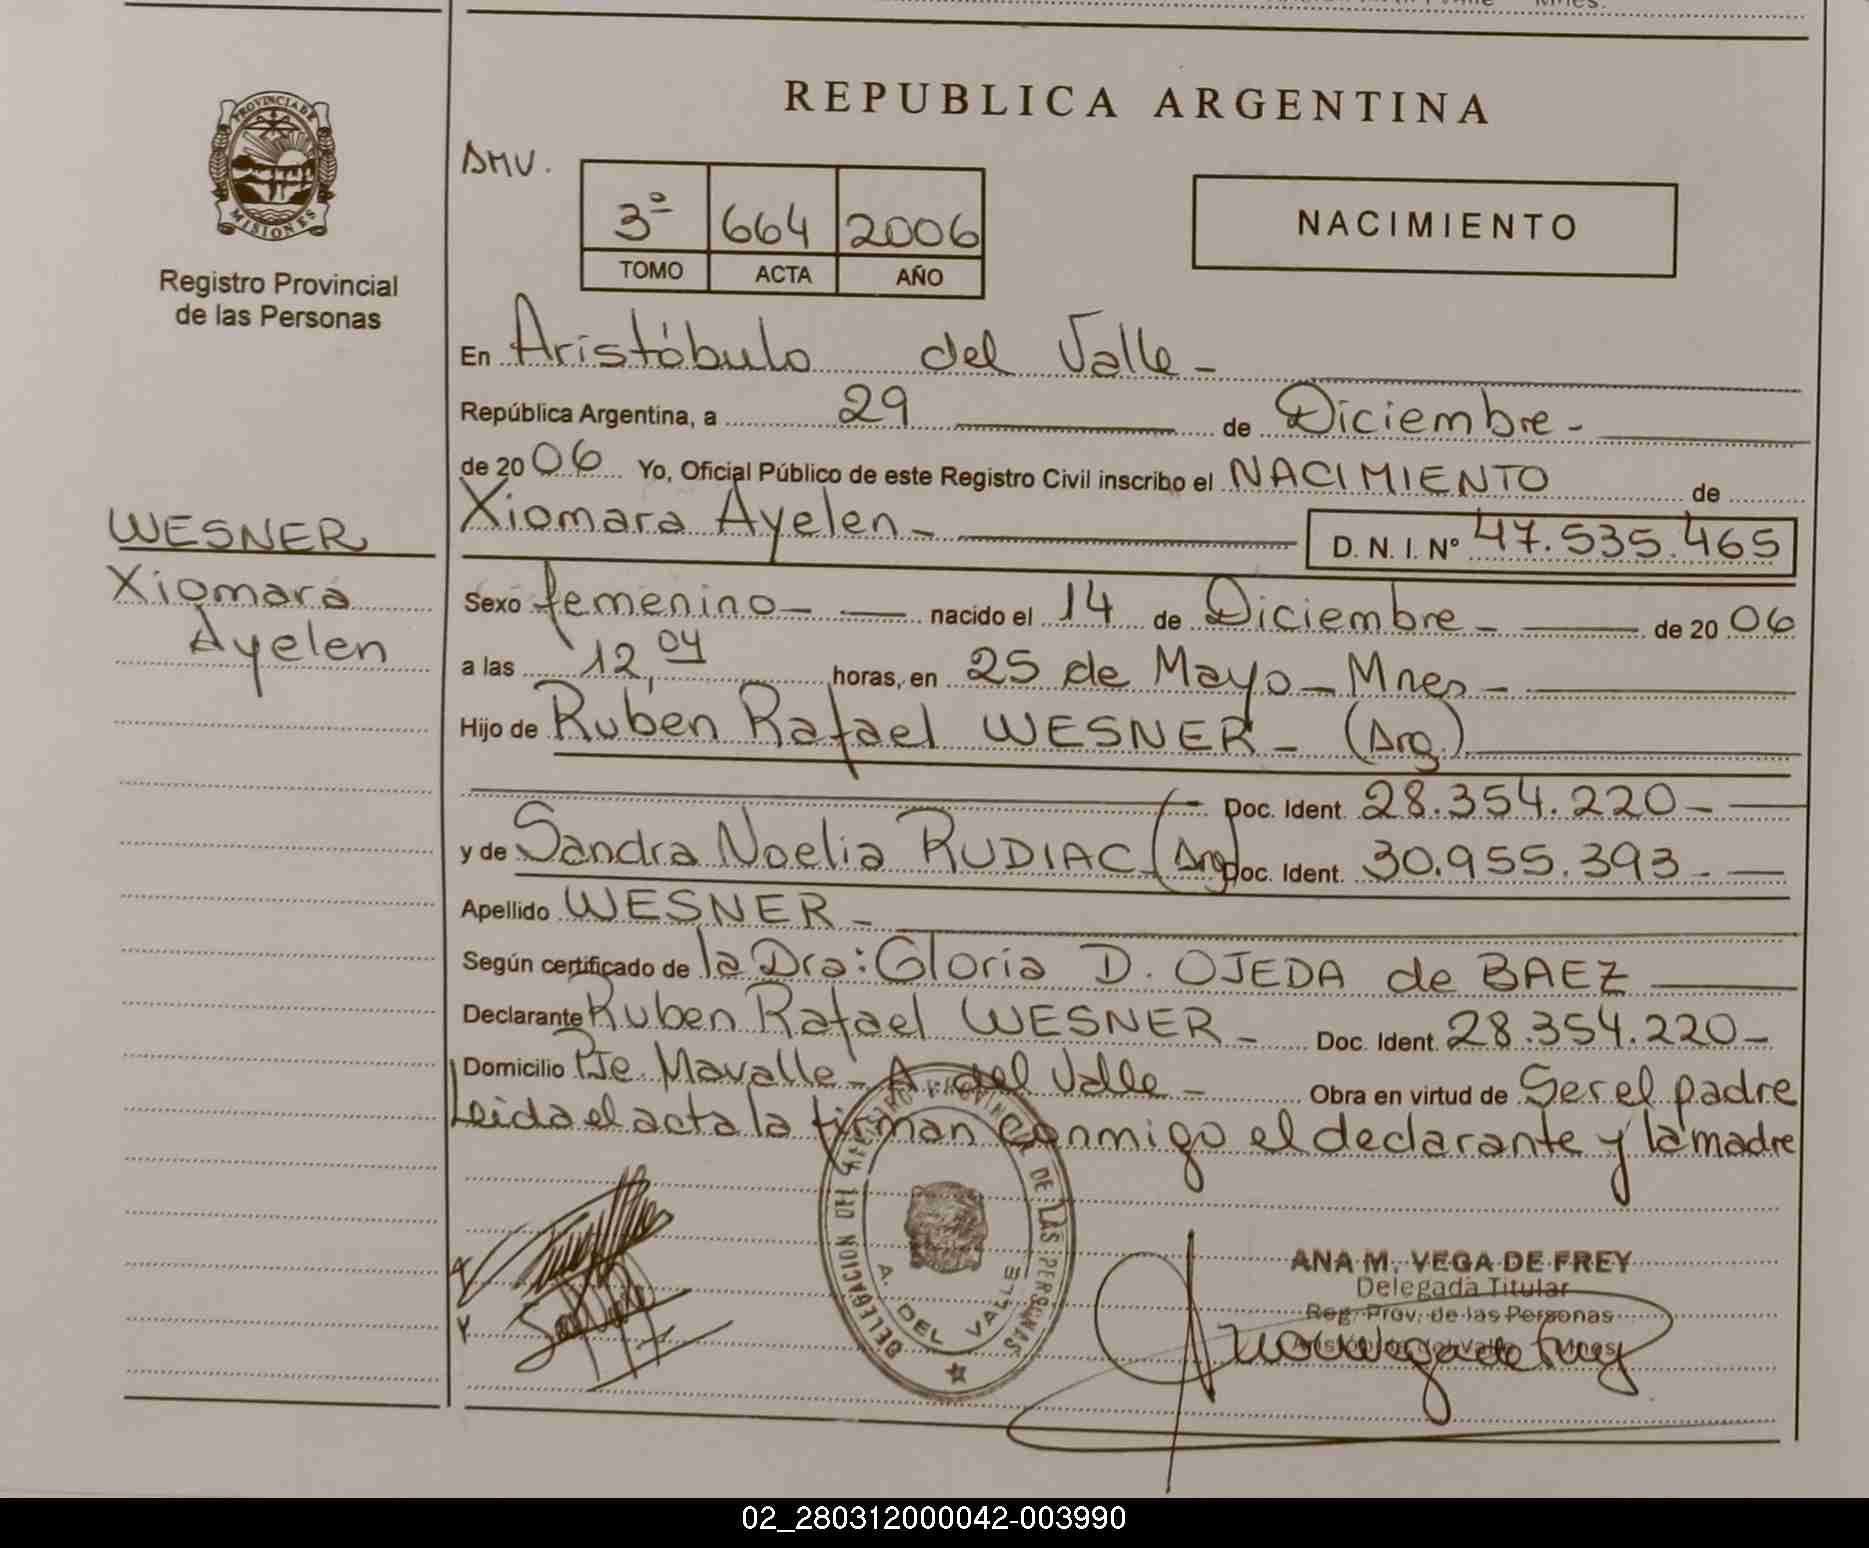 REPUBLICA ARGENTINA
PROVINCIA DE
MISIONES
Registro Provincial
de las Personas
3º 664 2006
TOMO ACTA AÑO
NACIMIENTO
En Aristóbulo del Valle -
República Argentina, a 29 de Diciembre -
de 2006 Yo, Oficial Público de este Registro Civil inscribo el NACIMIENTO de
Xiomara Ayelen - D. N. I. Nº 47.535.465
WESNER
Xiomara
Ayelen
Sexo femenino - nacido el 14 de Diciembre - de 2006
a las 12,04 horas, en 25 de Mayo - Mnes -
Hijo de Ruben Rafael WESNER - (Arg.)
Doc. Ident. 28.354.220 -
y de Sandra Noelia RUDIAC (Arg) Doc. Ident. 30.955.393 -
Apellido WESNER -
Según certificado de la Dra: Gloria D. OJEDA de BAEZ
Declarante Ruben Rafael WESNER - Doc. Ident. 28.354.220 -
Domicilio Pje. Mavalle - A. del Valle - Obra en virtud de Ser el padre
Leida el acta la firman conmigo el declarante y la madre
DELEGACION DEL REGISTRO PROVINCIAL DE LAS PERSONAS
A. DEL VALLE
ANA M. VEGA DE FREY
Delegada Titular
Reg. Prov. de las Personas
02_280312000042-003990